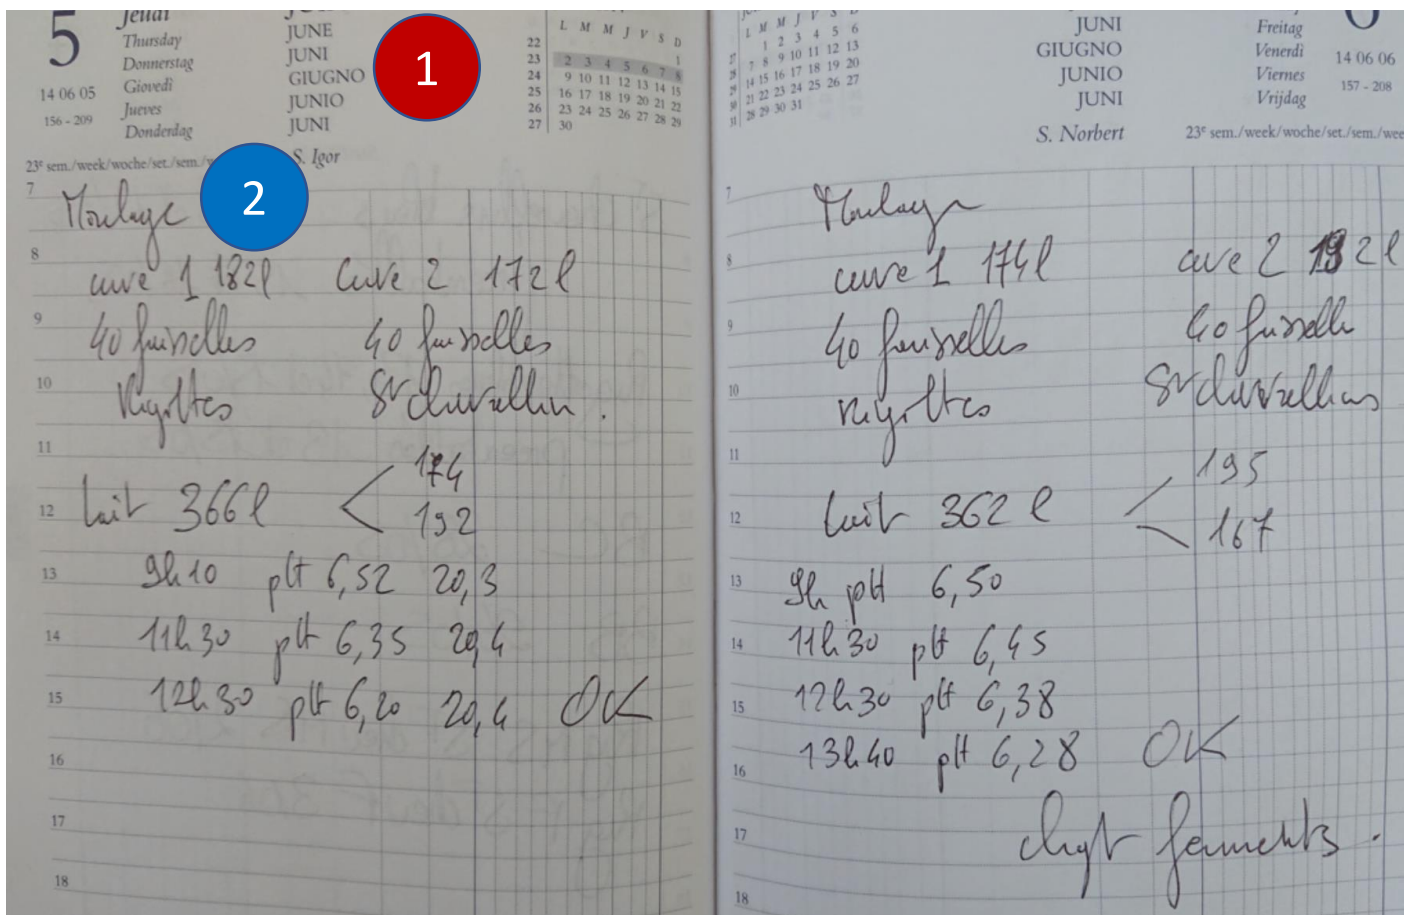 5
Jeudi
Thursday
Donnerstag
Giovedì
Jueves
Donderdag
14 06 05
156 - 209
JUNE
JUNI
GIUGNO
JUNIO
JUNI
S. Igor
1
L M M J V S D
22 1
23 2 3 4 5 6 7 8
24 9 10 11 12 13 14 15
25 16 17 18 19 20 21 22
26 23 24 25 26 27 28 29
27 30
23e sem./week/woche/set./sem./
2
7 Moulage
8 cuve 1 182l cuve 2 172l
9 40 faisselles 40 faisselles
10 Rigottes
11 174
12 lait 366l < 192
13 9h10 pH 6,52 20,3
14 11h30 pH 6,35 20,4
15 12h30 pH 6,20 20,4 OK
16
17
18
L M M J V S D
1 2 3 4 5 6
7 8 9 10 11 12 13
14 15 16 17 18 19 20
21 22 23 24 25 26 27
31 28 29 30 31
JUNI
GIUGNO
JUNIO
JUNI
S. Norbert
Freitag
Venerdì
Viernes
Vrijdag
14 06 06
157 - 208
23e sem./week/woche/set./sem./wee
7 Moulage
8 cuve 1 174l cuve 2 192l
9 40 faisselles 40 faisselle
10 rigottes
11 195
12 lait 362l < 167
13 9h pH 6,50
14 11h30 pH 6,45
15 12h30 pH 6,38
16 13h40 pH 6,28 OK
17 chgt ferments.
18